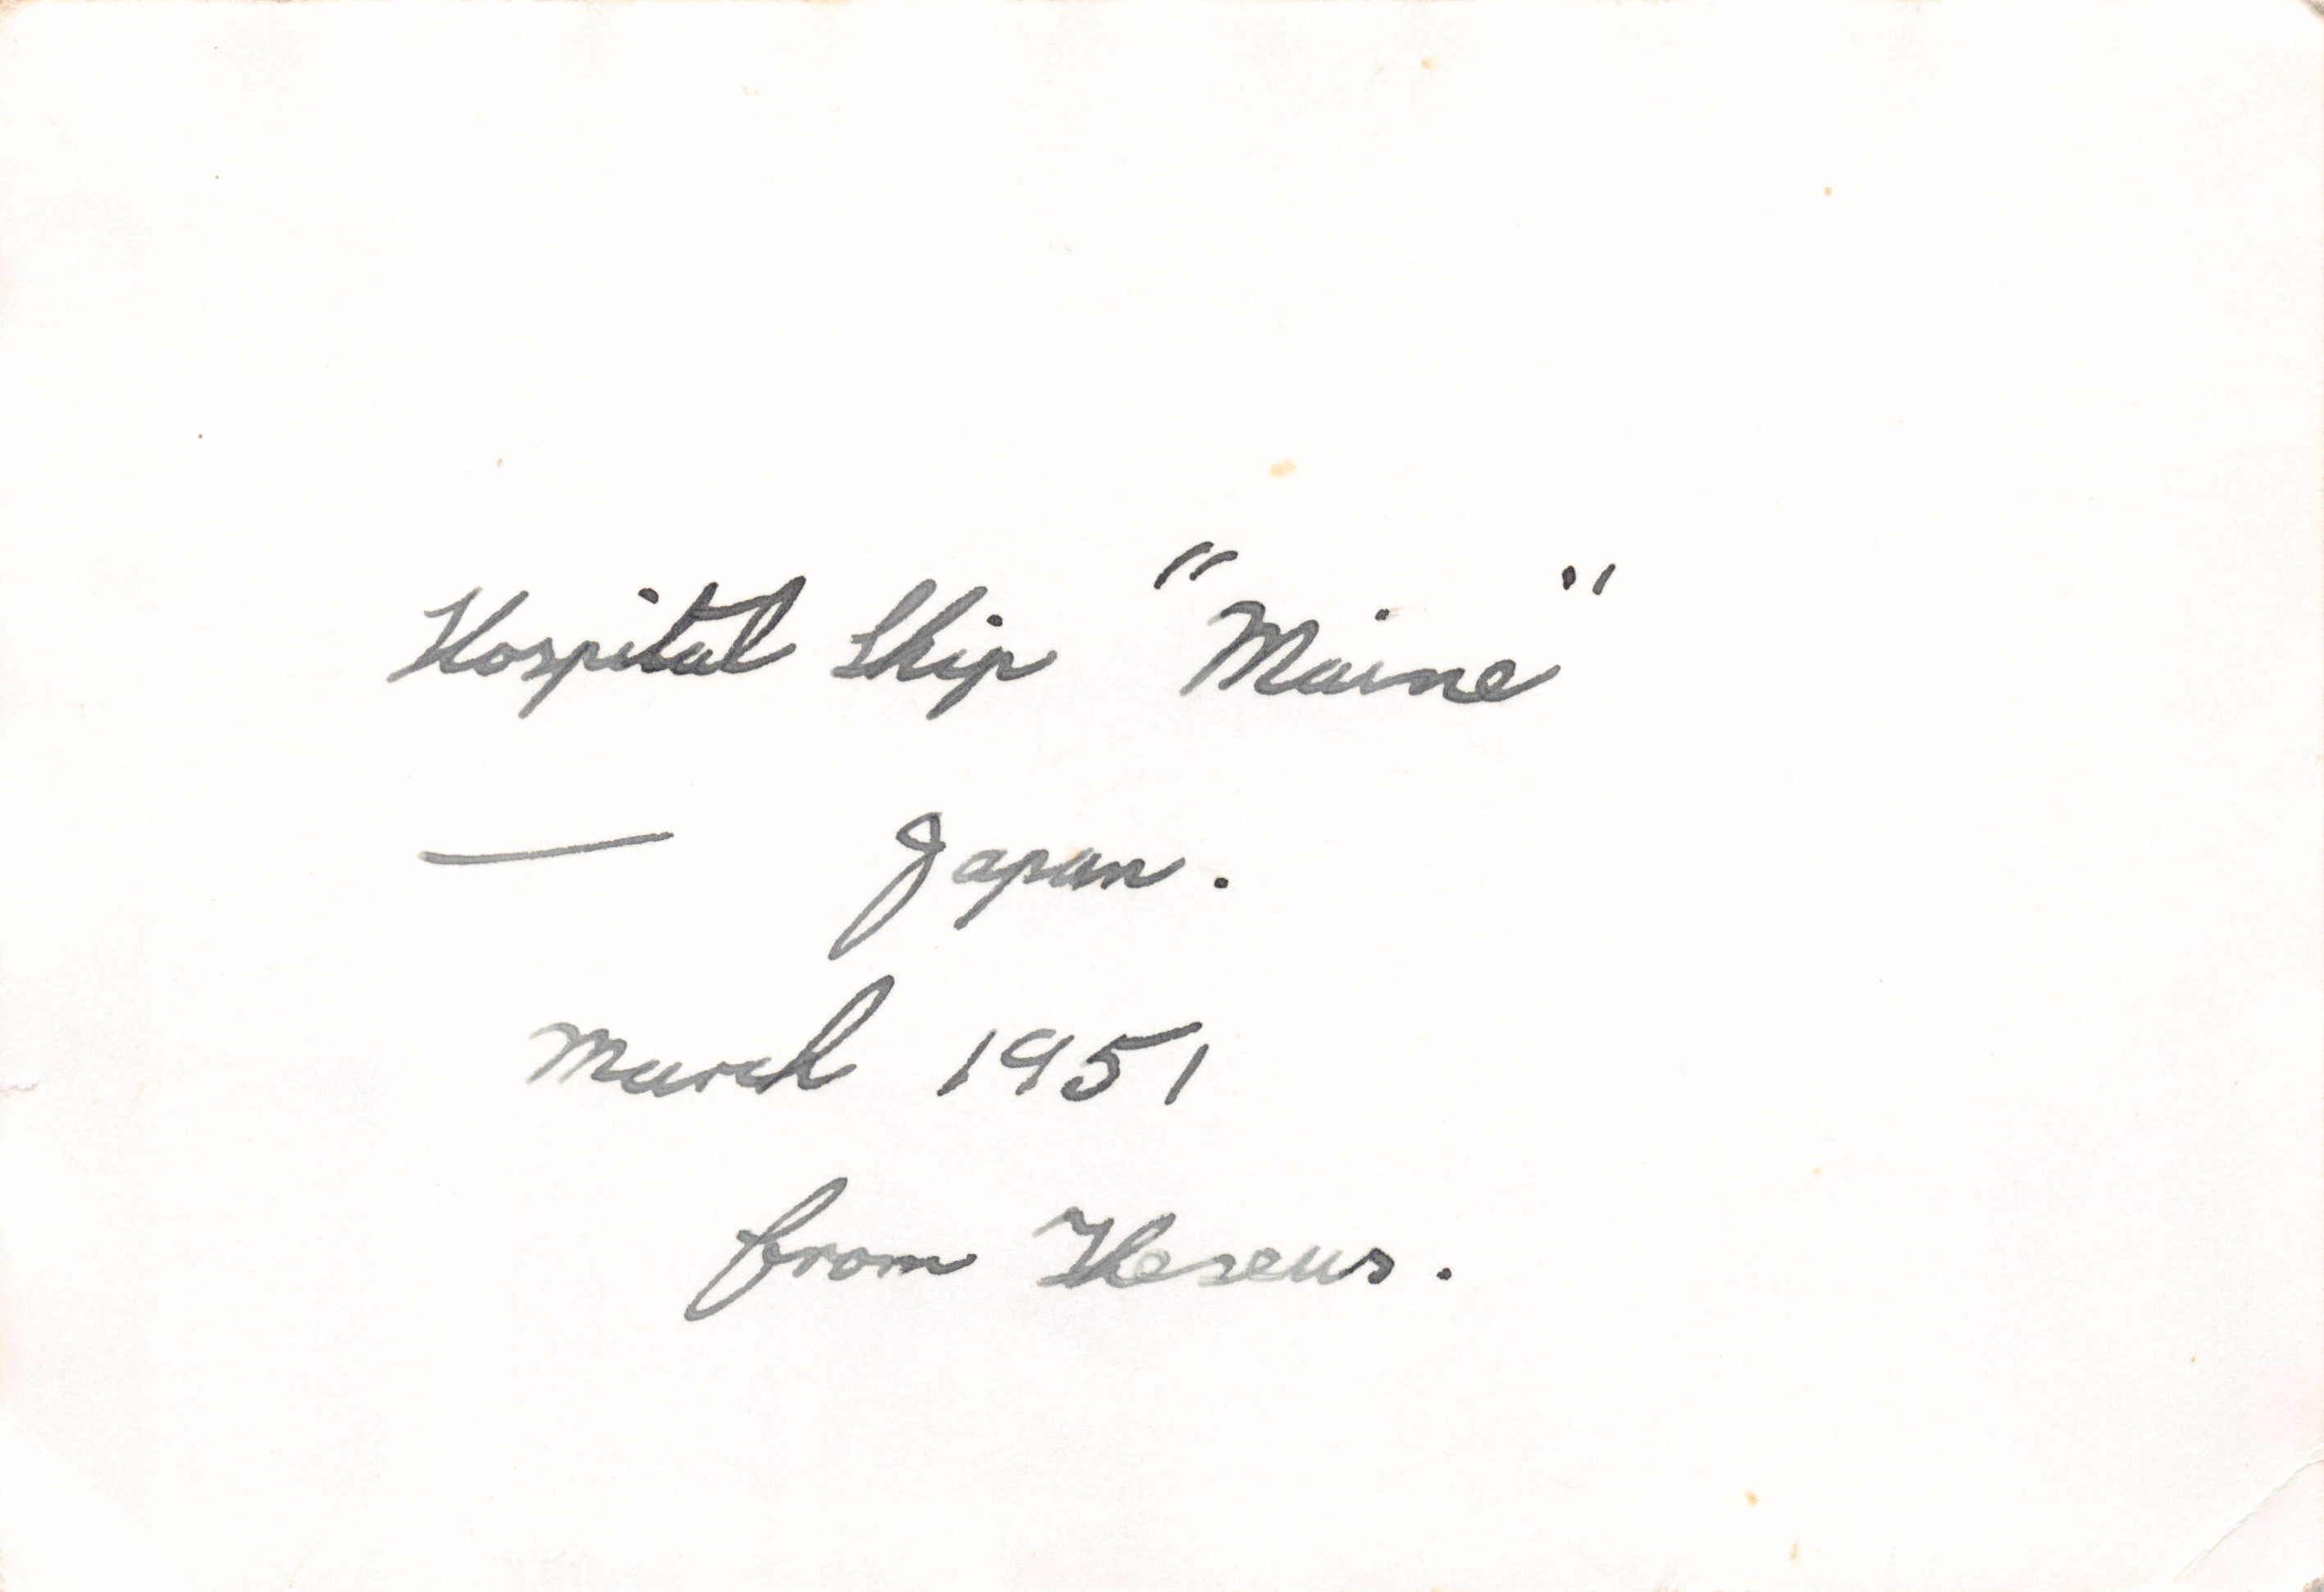 Hospital Ship "Maine"
— Japan.
March 1951
from Theseus.